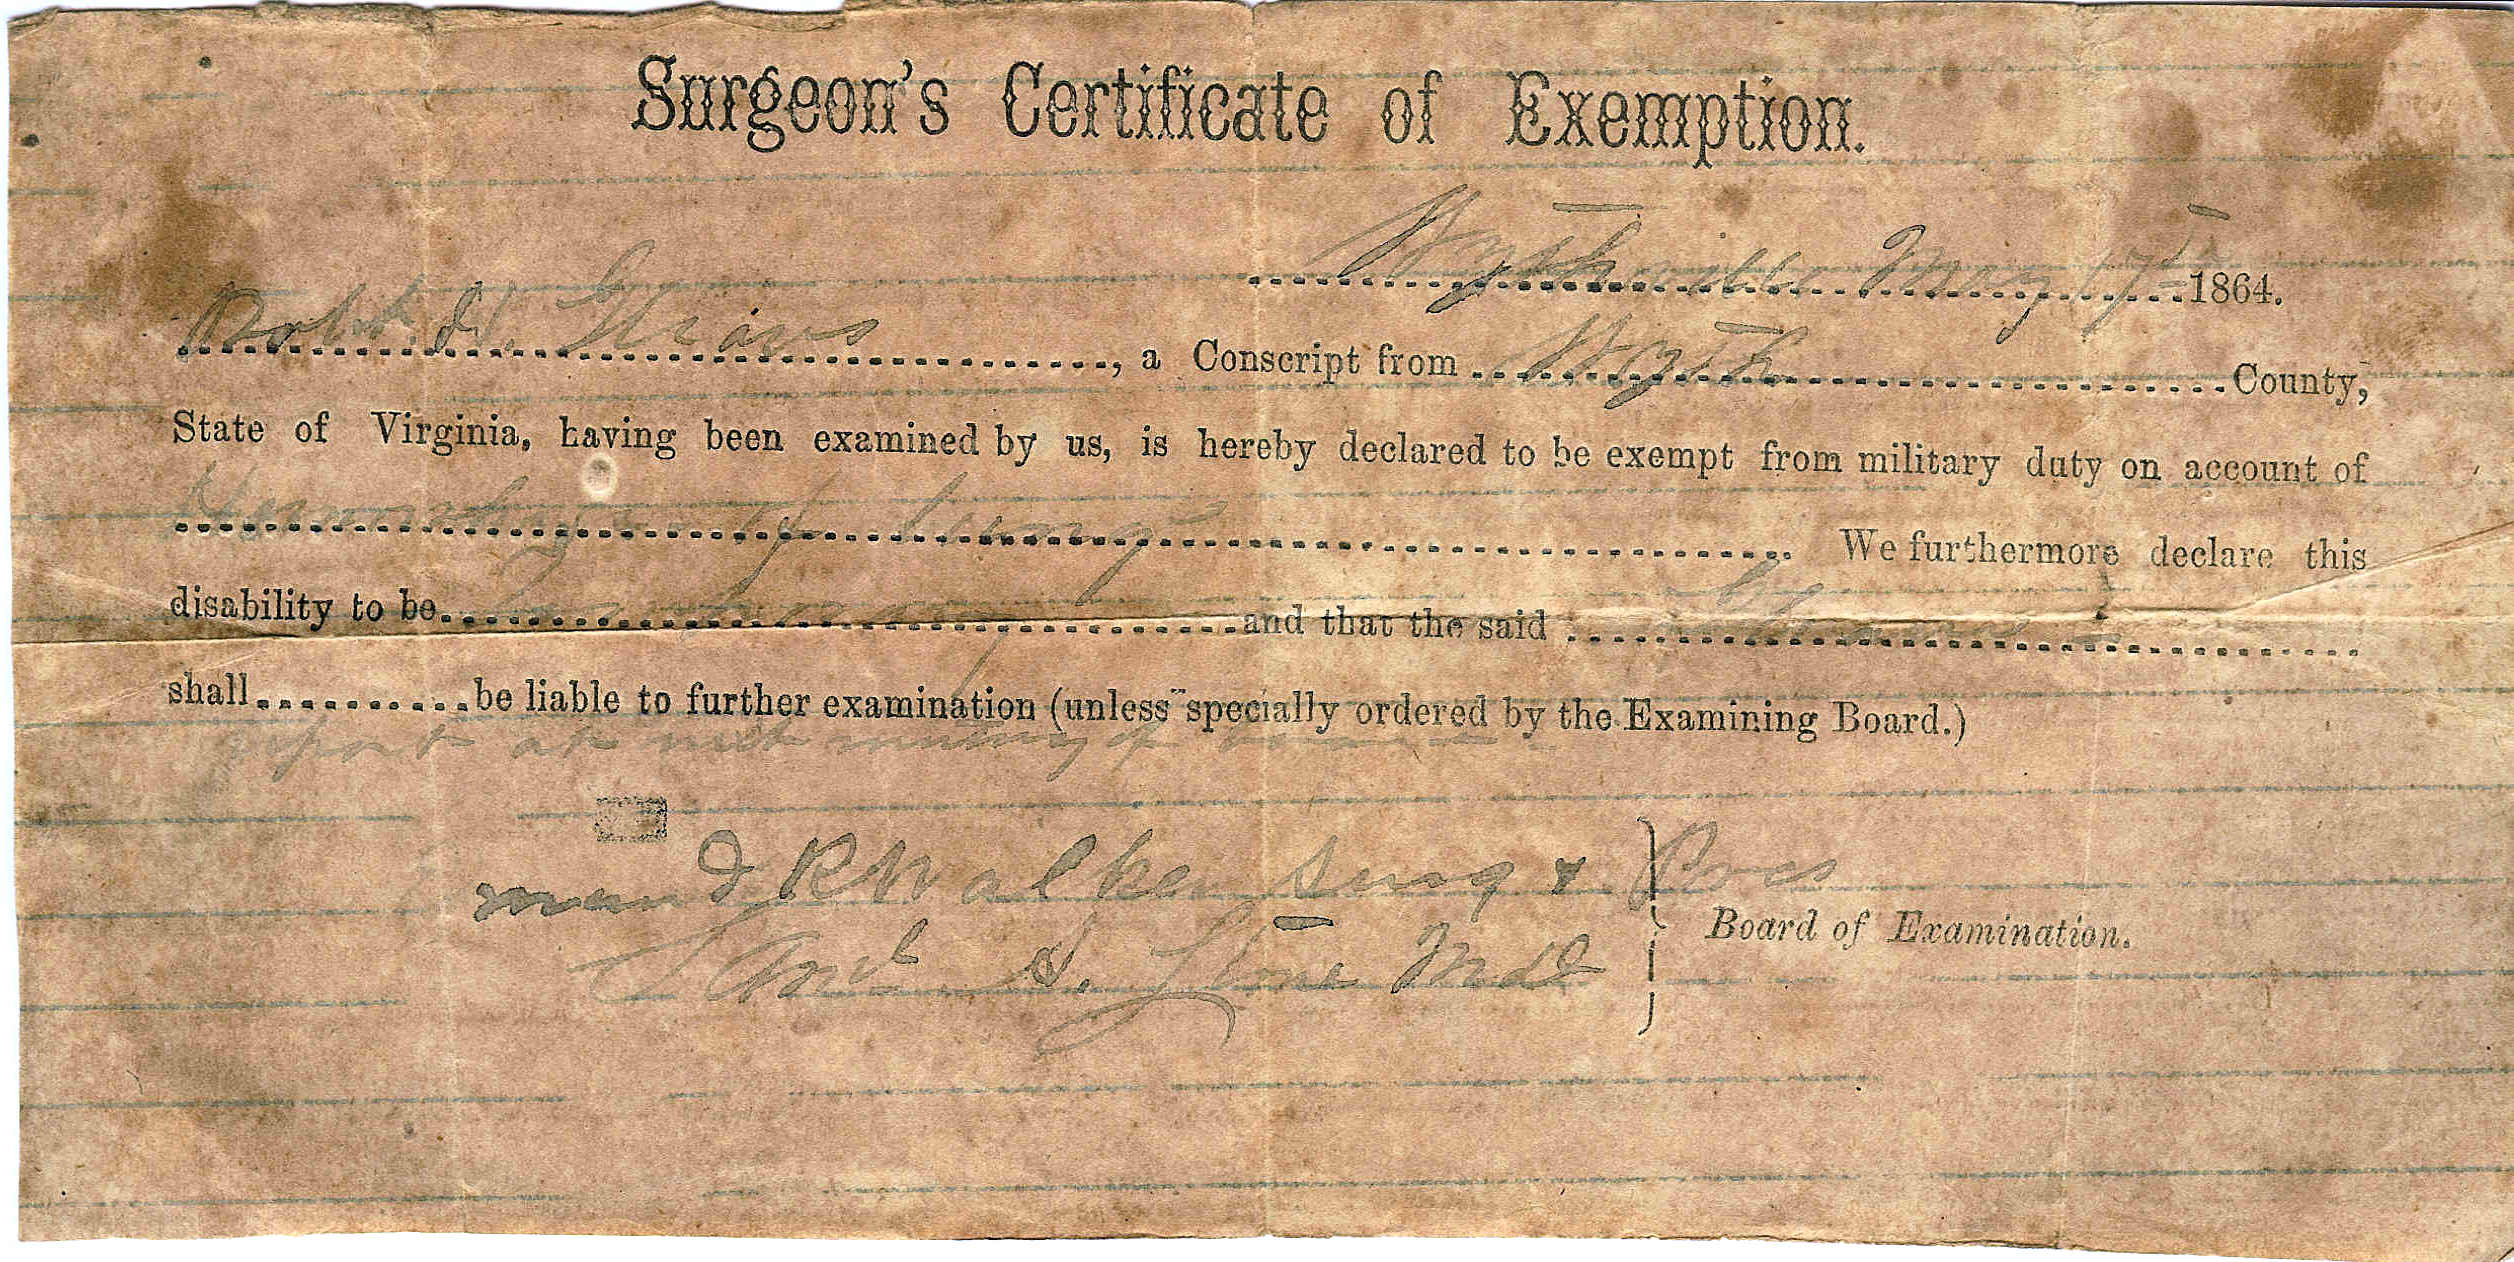 Surgeon's Certificate of Exemption.
Wytheville May 17th 1864.
Robt. H. , a Conscript from Wythe County,
State of Virginia, having been examined by us, is hereby declared to be exempt from military duty on account of
Hemorrhage of lungs We furthermore declare this
disability to be Temporary and that the said
shall be liable to further examination (unless specially ordered by the Examining Board.)
report at next meeting of
R W Walker Surg & Pres
S. Md
Board of Examination.